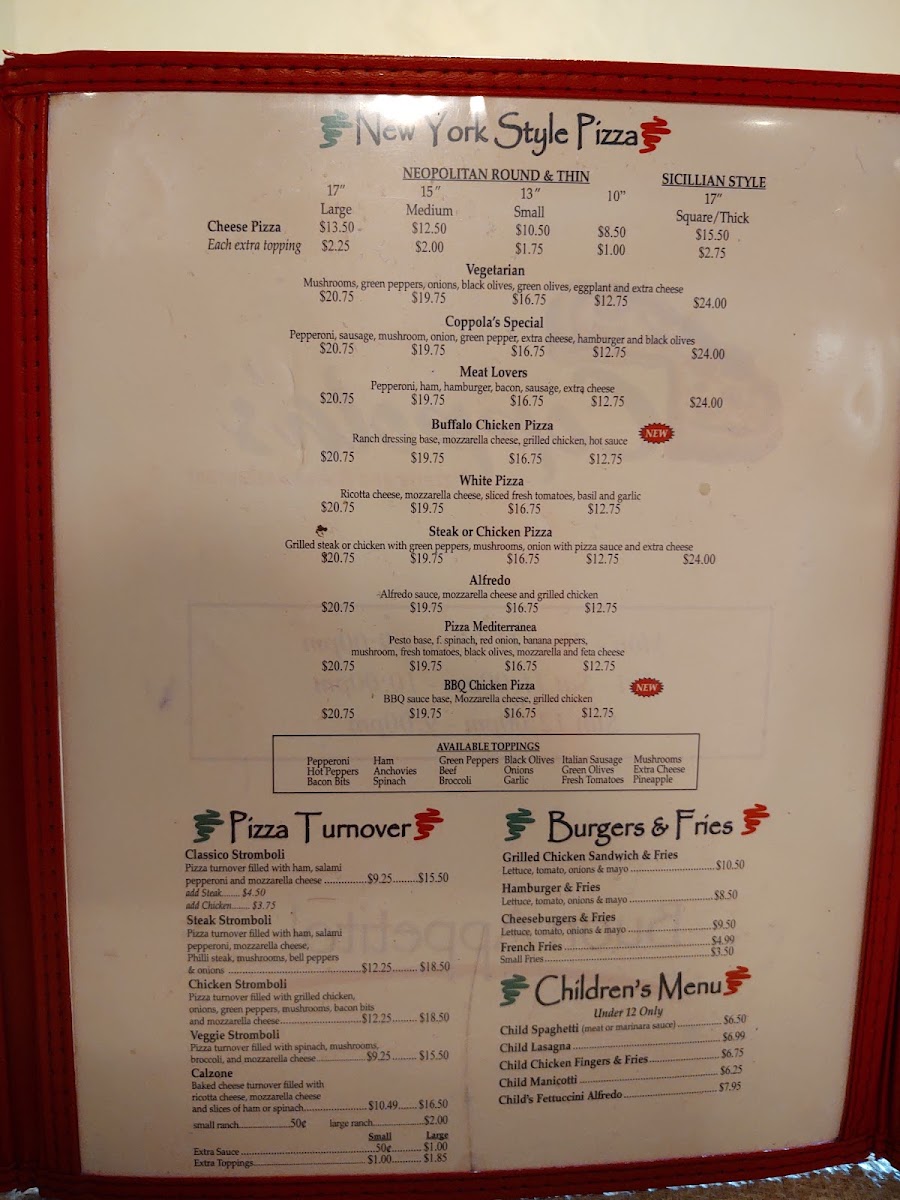 New York Style Pizza
NEOPOLITAN ROUND & THIN SICILLIAN STYLE
17" 15" 13" 10" 17"
Large Medium Small Square/Thick
Cheese Pizza $13.50 $12.50 $10.50 $8.50 $15.50
Each extra topping $2.25 $2.00 $1.75 $1.00 $2.75
Vegetarian
Mushrooms, green peppers, onions, black olives, green olives, eggplant and extra cheese
$20.75 $19.75 $16.75 $12.75 $24.00
Coppola's Special
Pepperoni, sausage, mushroom, onion, green pepper, extra cheese, hamburger and black olives
$20.75 $19.75 $16.75 $12.75 $24.00
Meat Lovers
Pepperoni, ham, hamburger, bacon, sausage, extra cheese
$20.75 $19.75 $16.75 $12.75 $24.00
Buffalo Chicken Pizza NEW
Ranch dressing base, mozzarella cheese, grilled chicken, hot sauce
$20.75 $19.75 $16.75 $12.75
White Pizza
Ricotta cheese, mozzarella cheese, sliced fresh tomatoes, basil and garlic
$20.75 $19.75 $16.75 $12.75
Steak or Chicken Pizza
Grilled steak or chicken with green peppers, mushrooms, onion with pizza sauce and extra cheese
$20.75 $19.75 $16.75 $12.75 $24.00
Alfredo
Alfredo sauce, mozzarella cheese and grilled chicken
$20.75 $19.75 $16.75 $12.75
Pizza Mediterranea
Pesto base, f. spinach, red onion, banana peppers,
mushroom, fresh tomatoes, black olives, mozzarella and feta cheese
$20.75 $19.75 $16.75 $12.75
BBQ Chicken Pizza NEW
BBQ sauce base, Mozzarella cheese, grilled chicken
$20.75 $19.75 $16.75 $12.75
AVAILABLE TOPPINGS
Pepperoni Ham Green Peppers Black Olives Italian Sausage Mushrooms
Hot Peppers Anchovies Beef Onions Green Olives Extra Cheese
Bacon Bits Spinach Broccoli Garlic Fresh Tomatoes Pineapple
Pizza Turnover
Classico Stromboli
Pizza turnover filled with ham, salami
pepperoni and mozzarella cheese ...............$9.25........$15.50
add Steak....... $4.50
add Chicken....... $3.75
Steak Stromboli
Pizza turnover filled with ham, salami
pepperoni, mozzarella cheese,
Philli steak, mushrooms, bell peppers
& onions ..............................................$12.25........ $18.50
Chicken Stromboli
Pizza turnover filled with grilled chicken,
onions, green peppers, mushrooms, bacon bits
and mozzarella cheese............................$12.25........ $18.50
Veggie Stromboli
Pizza turnover filled with spinach, mushrooms,
broccoli, and mozzarella cheese.................$9.25........ $15.50
Calzone
Baked cheese turnover filled with
ricotta cheese, mozzarella cheese
and slices of ham or spinach......................$10.49...... $16.50
small ranch.................50¢ large ranch.................$2.00
Small Large
Extra Sauce ..............................................50¢.......... $1.00
Extra Toppings........................................$1.00.......... $1.85
Burgers & Fries
Grilled Chicken Sandwich & Fries
Lettuce, tomato, onions & mayo ...........................$10.50
Hamburger & Fries
Lettuce, tomato, onions & mayo ...........................$8.50
Cheeseburgers & Fries
Lettuce, tomato, onions & mayo ...........................$9.50
French Fries ...................................................$4.99
Small Fries.......................................................$3.50
Children's Menu
Under 12 Only
Child Spaghetti (meat or marinara sauce) ...............$6.50
Child Lasagna ..................................................$6.99
Child Chicken Fingers & Fries...........................$6.75
Child Manicotti ................................................$6.25
Child's Fettuccini Alfredo..................................$7.95